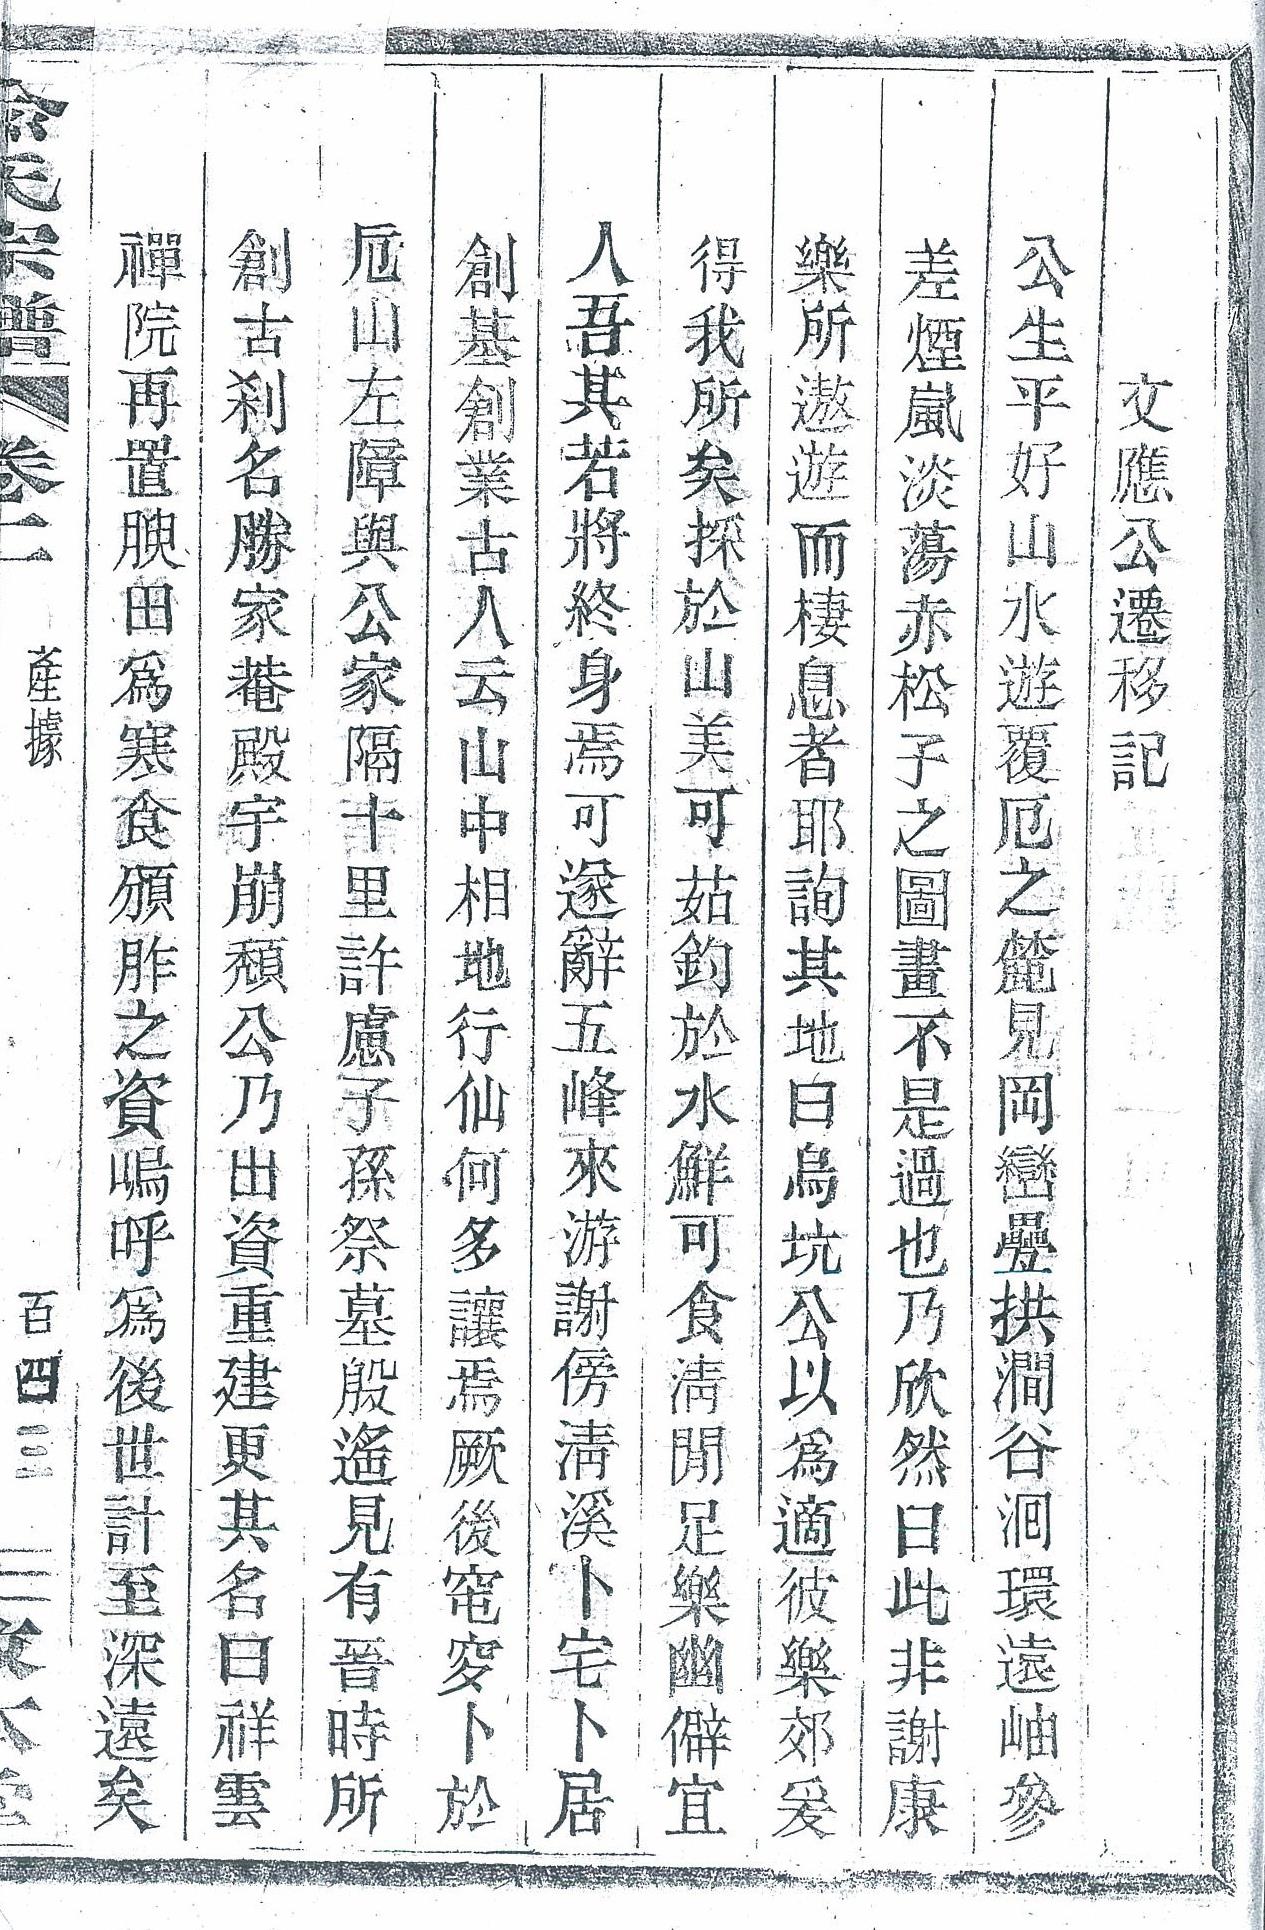 文應公遷移記
公生平好山水遊覆卮之麓見岡巒疊拱澗谷洄環遠岫參
差煙嵐淡蕩赤松子之圖畫不是過也乃欣然曰此非謝康
樂所遨遊而棲息者耶詢其地曰烏坑公以爲適彼樂郊爰
得我所矣採於山美可茹釣於水鮮可食淸閒足樂幽僻宜
人吾其若將終身焉可遂辭五峰來游謝傍淸溪卜宅卜居
創基創業古人云山中相地行仙何多讓焉厥後窀穸卜於
卮山左障與公家隔十里許慮子孫祭墓殷遙見有晉時所
創古刹名勝家菴殿宇崩頹公乃出資重建更其名曰祥雲
禪院再置腴田爲寒食頒胙之資嗚呼爲後世計至深遠矣
氏宗譜 卷二 產據 百四三